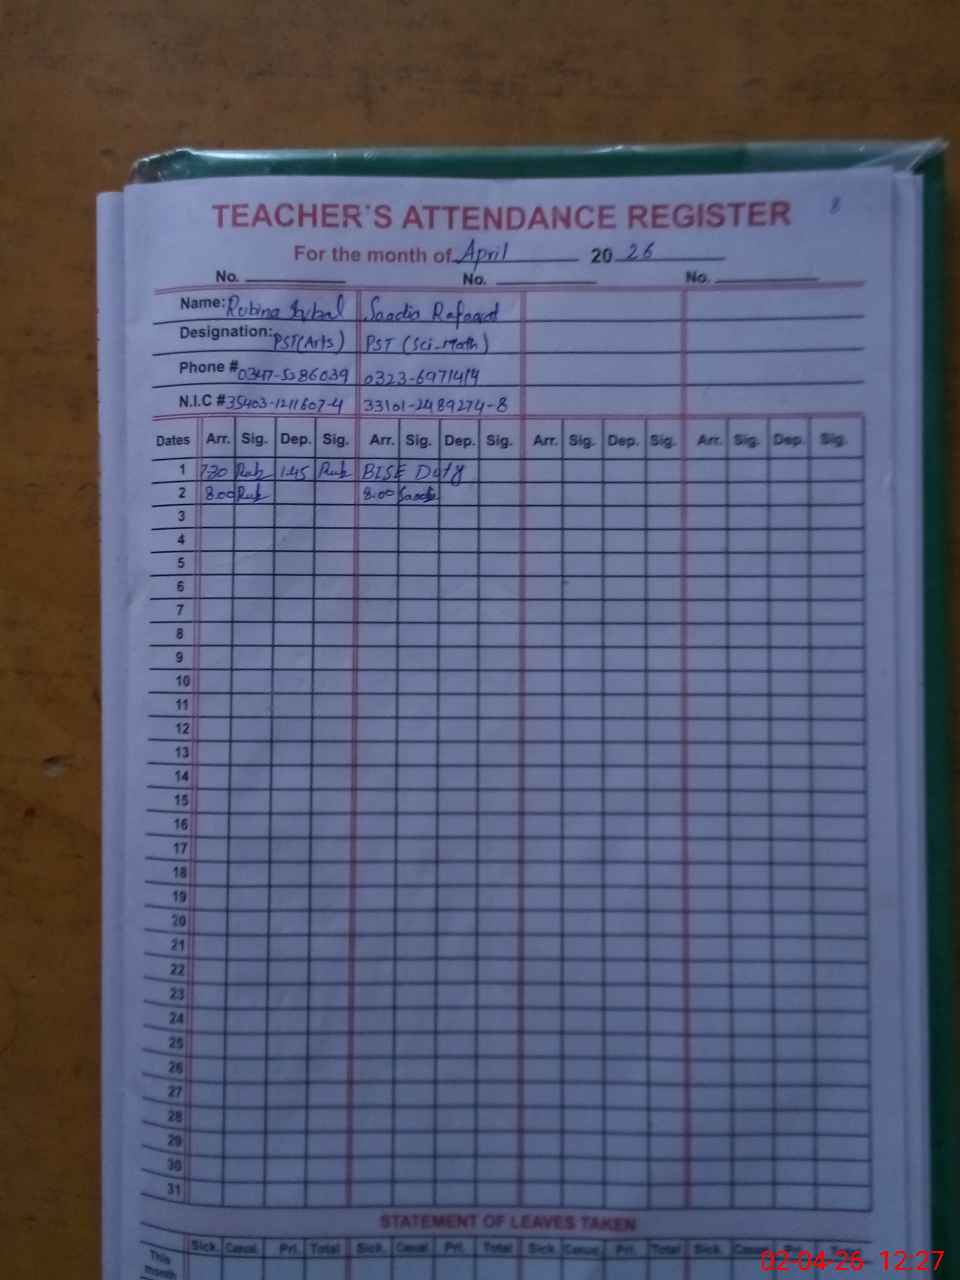 8
TEACHER'S ATTENDANCE REGISTER
For the month of April 20 26
No. No. No.
Name: Rubina Iqbal Saadia Rafaqat
Designation: PST(Arts) PST (Sci-Math)
Phone # 0347-5286039 0323-6971414
N.I.C # 35403-1211607-4 33101-2489274-8
Dates Arr. Sig. Dep. Sig. Arr. Sig. Dep. Sig. Arr. Sig. Dep. Sig. Arr. Sig. Dep. Sig.
1 7:30 Rub 1:45 Rub BISE Duty
2 8:00 Rub 8:00 Saadia
3
4
5
6
7
8
9
10
11
12
13
14
15
16
17
18
19
20
21
22
23
24
25
26
27
28
29
30
31
STATEMENT OF LEAVES TAKEN
This month Sick. Casual. Pri. Total Sick. Casual. Pri. Total Sick. Casual. Pri. Total Sick. Casual.
02-04-26 12:27